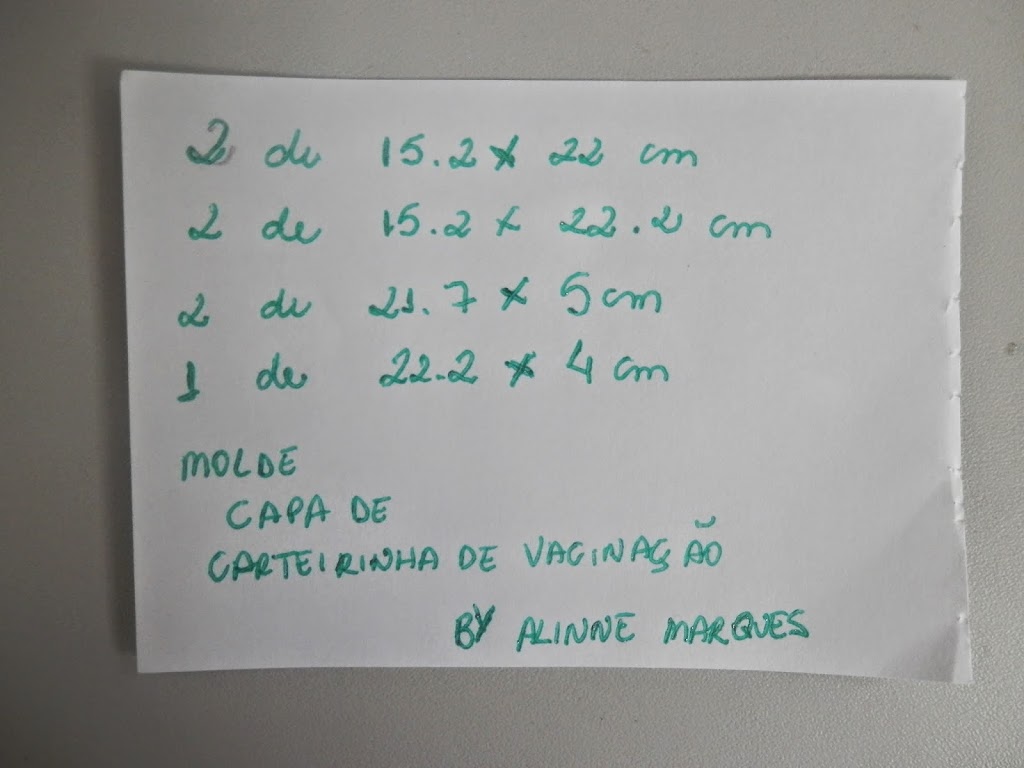 2 de 15.2 x 22 cm
2 de 15.2 x 22.2 cm
2 de 21.7 x 5 cm
1 de 22.2 x 4 cm
MOLDE
CAPA DE
CARTEIRINHA DE VACINAÇÃO
BY ALINNE MARQUES